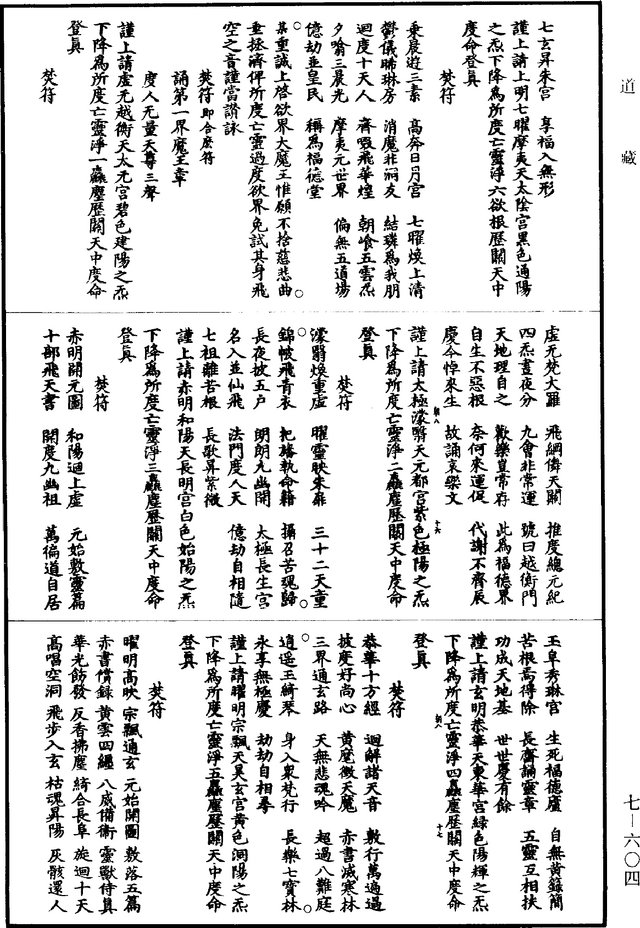 道藏
七玄昇朱宮　享福入無形
謹上請上明七曜摩夷天太陰宮黑色通陽
之炁下降爲所度亡靈淨六欲根歷關天中
度命登真
焚符
乘晨遊三素　高奔日月宮　七曜煥上清
鬱儀睎琳房　消魔非洞友　結璘爲我朋
迴度十天人　齋嗷飛華煌　朝飡五雲炁
夕噏三晨光　摩夷元世界　偏無五道場
億劫並皇民　稱爲福德堂
某重誠上啓欲界大魔王惟願不捨慈悲曲
垂拯濟俾所度亡靈過度欲界免試其身飛
空之音謹當讚詠
焚符即合麾符
誦第一界魔王章
度人无量天尊三聲
謹上請虛无越衡天太元宮碧色建陽之炁
下降爲所度亡靈淨一麤塵歷關天中度命
登真
焚符
虛无梵大羅　飛綱僞天關　推度總元紀
四炁晝夜分　九會非常運　號曰越衡門
天地理自之　歡樂豈常存　此爲福德界
自生不惡根　奈何來運促　代謝不齊辰
慶今悼來生　故誦哀樂文
謹上請太極濛翳天元都宮紫色極陽之炁
下降爲所度亡靈淨二麤塵歷關天中度命
登真
焚符
濛翳煥重虛　曜靈映朱扉　三十二天重
錦帔飛青衣　把旛執命籍　攝召苦魂歸
長夜披五戶　朗朗九幽開　太極長生宮
名入並仙飛　法門度八天　億劫自相隨
七祖離苦根　長歌昇紫微
謹上請赤明和陽天長明宮白色始陽之炁
下降爲所度亡靈淨三麤塵歷關天中度命
登真
焚符
赤明開元圖　和陽迴上虛　元始敷靈篇
十部飛天書　開度九幽祖　萬徧道自居
玉阜秀琳宮　生死福德廬　自無黃籙簡
苦根焉得除　長齋誦靈章　五靈互相扶
功成天地基　世世慶有餘
謹上請玄明恭華天東華宮綠色陽輝之炁
下降爲所度亡靈淨四麤塵歷關天中度命
登真
焚符
恭華十方經　迴解諸天音　敷行萬遍過
披度好尚心　黃魔徹天魔　赤書滅寒林
三界通玄路　天無悲魂吟　超過八難庭
逍遥玉綺琴　身入眾梵行　長樂七寶林
永享無極慶　劫劫自相尋
謹上請曜明宗飄天昊玄宮黃色洞陽之炁
下降爲所度亡靈淨五麤塵歷關天中度命
登真
焚符
曜明高映　宗飄通玄　元始開圖　敷落五篇
赤書煥錄　黃雲四纏　八威備衛　靈獸侍真
華光飭發　反香拂塵　綺合長阜　旋迴十天
高唱空洞　飛步入玄　枯魂昇陽　灰骸還人
七—六〇四